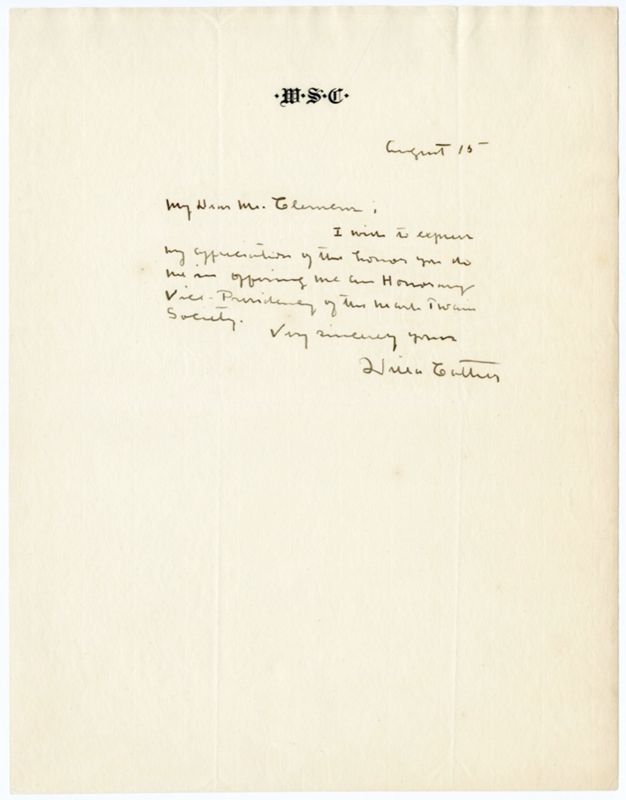 ·W·S·C·
August 15
My Dear Mr. Clemens;
I wish to express
my appreciation of the honor you do
me in offering me an Honorary
Vice-Presidency of the Mark Twain
Society.
Very sincerely yours
Willa Cather